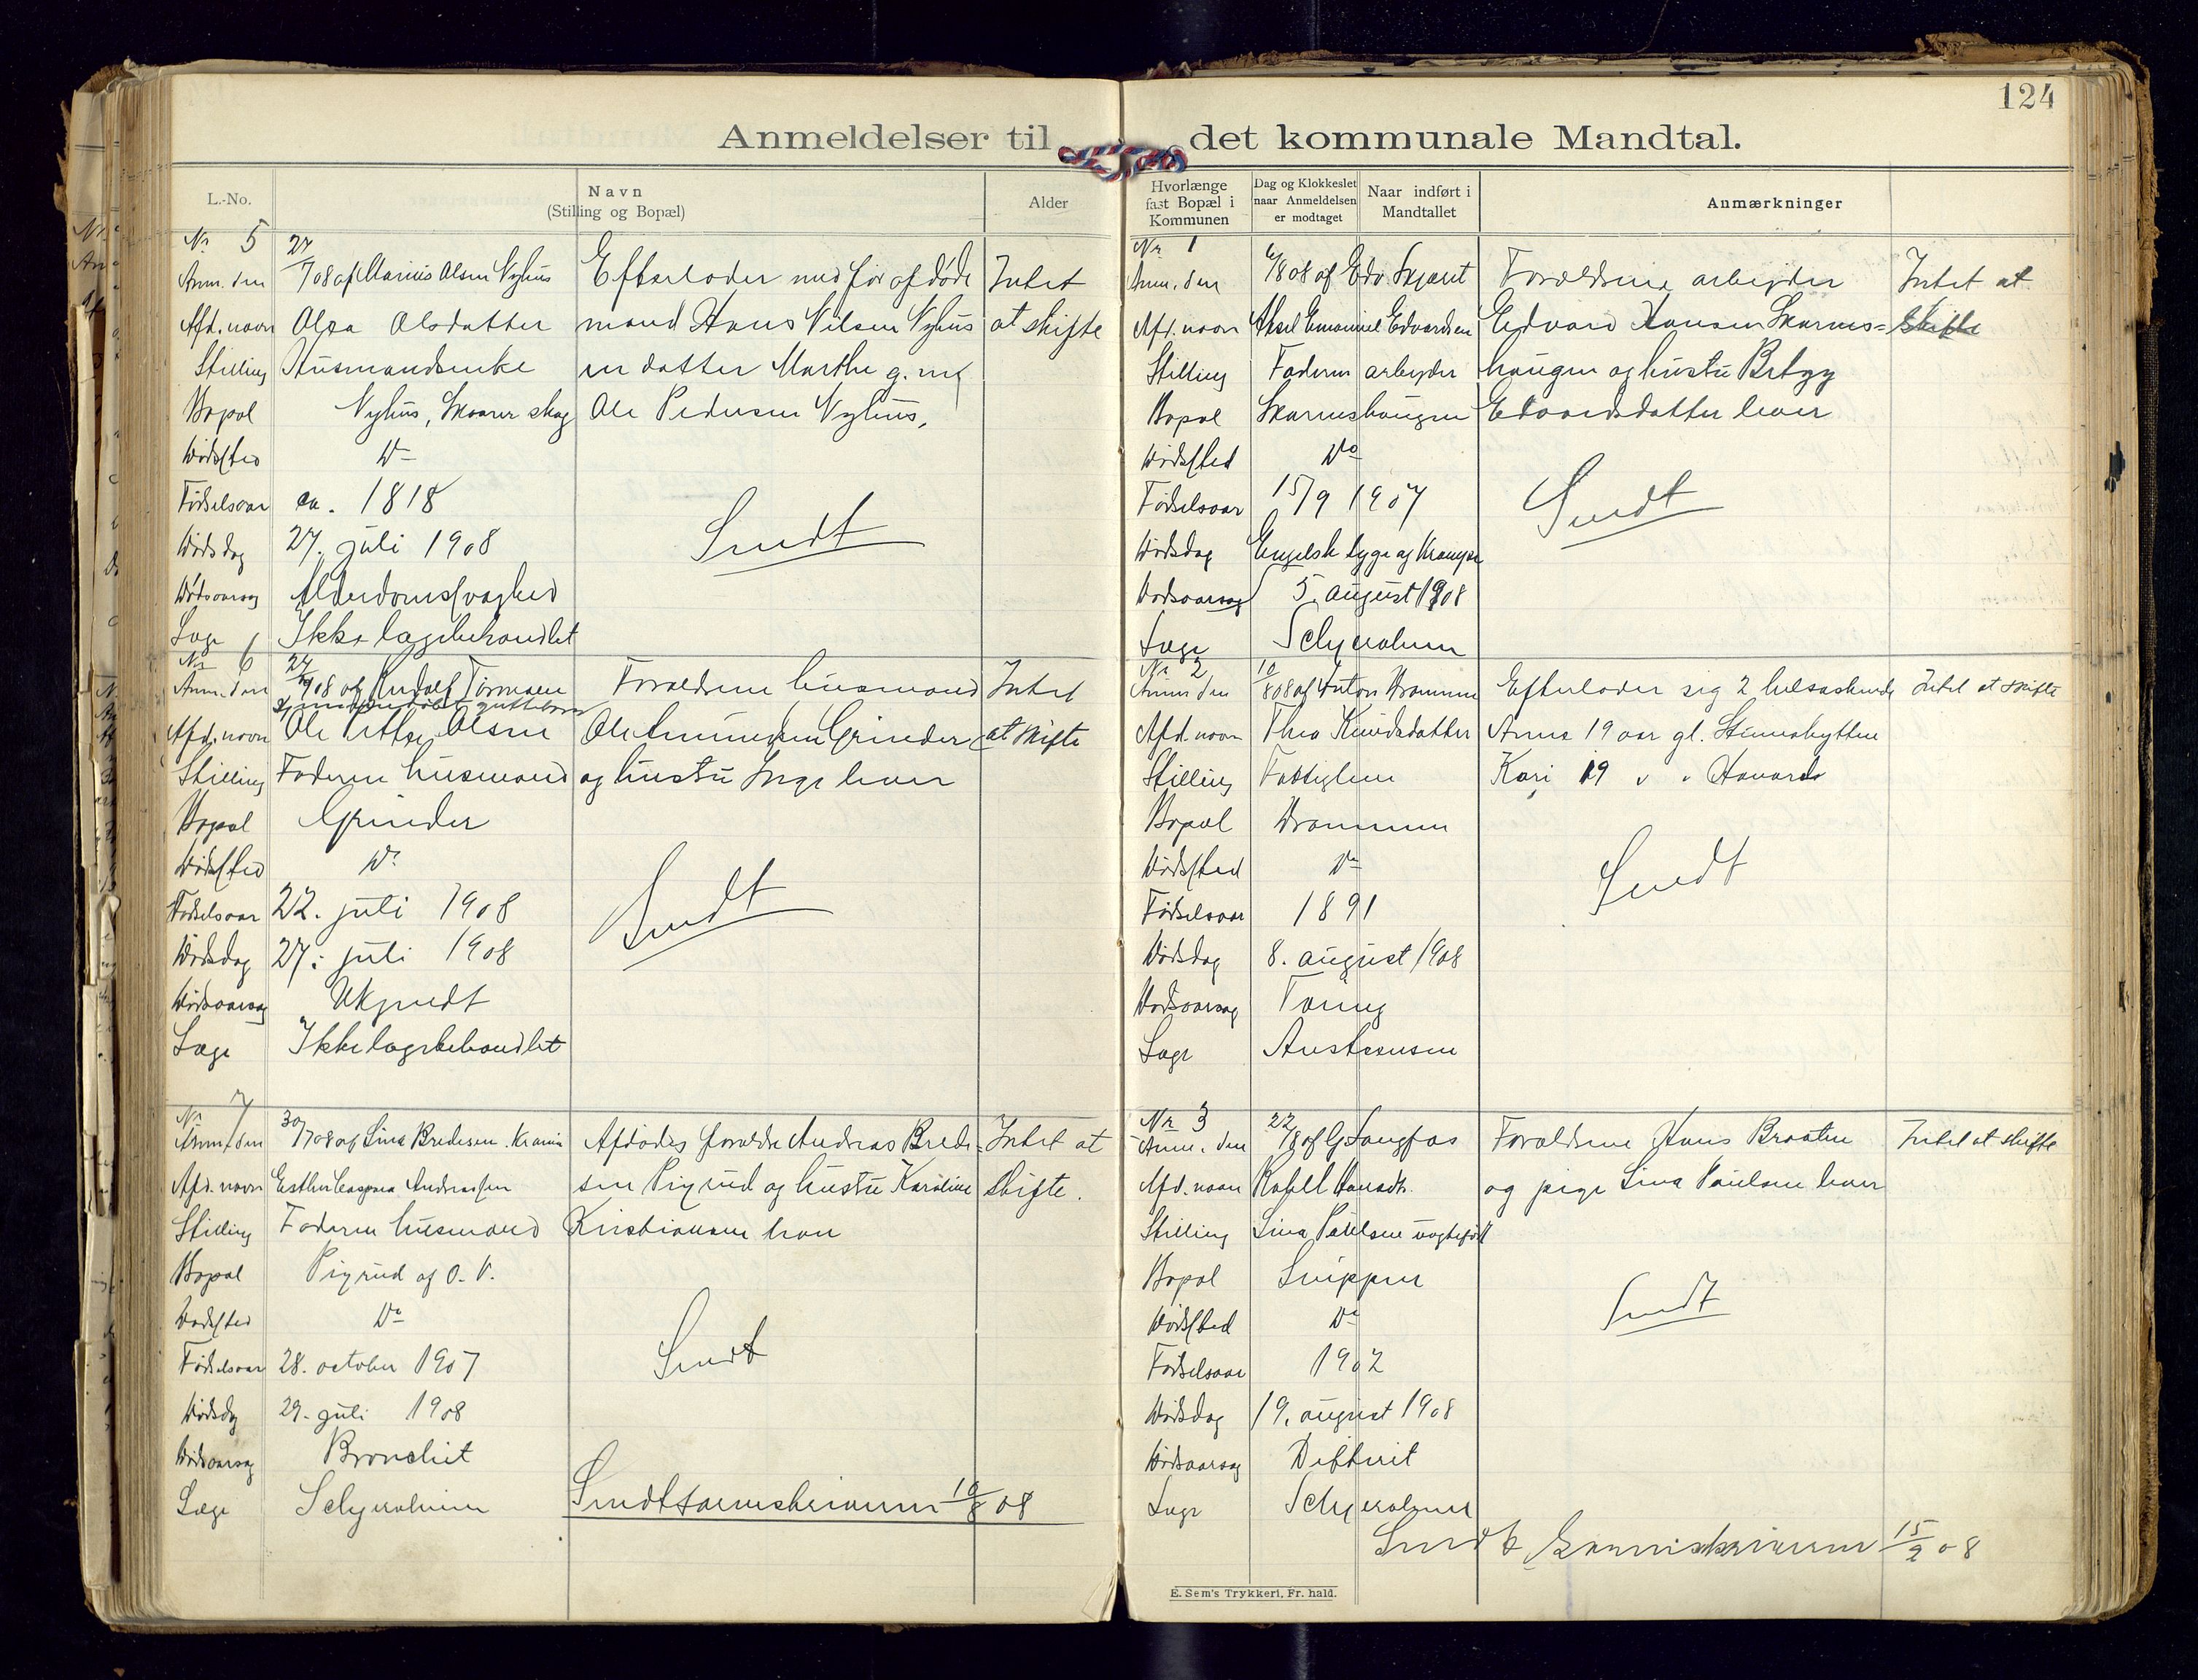 124
Anmeldelser til det kommunale Mandtal.
L.-No.
Navn
(Stilling og Bopæl)
Alder
Nr 5
Anm. den 27/7 08 af Marius Olsen Nyhus
Efterlader med før afdøde
Intet
Afd. navn Olea Olsdatter
mand Hans Nilsen Nyhus
at skifte
Stilling Husmandsenke
en datter Marthe g. m/
Bopæl Nyhus, Skaarer skog
Ole Pedersen Nyhus,
Dødssted Do
Fødselsaar ca. 1818
Sendt
Dødsdag 27. juli 1908
Dødsaarsag Alderdomssvaghed
Læge Ikke lægebehandlet
Nr 6
Anm. den 27/7 08 af
Forældrene husmand
Intet
Afd. navn Ole Olsen
Ole Amundsen Grinder
at skifte
Stilling Faderen husmand
og hustru Inga lever
Bopæl Grinder
Dødssted Do
Fødselsaar 22. juli 1908
Sendt
Dødsdag 27. juli 1908
Dødsaarsag Ukjendt
Læge Ikke lægebehandlet
Nr 7
Anm. den 30/7 08 af Lina Bredesen
Afdødes forældre Andreas Brede-
Intet at
Afd. navn Esther Caspara Andreassen
sen Pigrud og hustru Karoline
skifte.
Stilling Faderen husmand
Kristiansen
Bopæl Pigrud af O. V.
Dødssted Do
Fødselsaar 28. october 1907
Sendt
Dødsdag 29. juli 1908
Dødsaarsag Bronchit
Læge Schjerolmen
Sendt sorenskriveren 10/8 08
Hvorlænge
fast Bopæl i
Kommunen
Dag og Klokkeslet
naar Anmeldelsen
er modtaget
Naar indført i
Mandtallet
Anmærkninger
Nr 1
Anm. den 6/8 08 af Edv.
Forældrene arbeider
Intet at
Afd. navn Aksel Emanuel Edvardsen
Edvard Hansen Skarnes=
skifte
Stilling Faderen arbeyder
haugen og hustru Betzy
Bopæl Skarneshaugen
Edvardsdatter lever
Dødssted Do
Fødselsaar 15/9 1907
Sendt
Dødsdag Engelsk syge og Krampe
Dødsaarsag 5. august 1908
Læge Schjerolmen
Nr 2
Anm. den 10/8 08 af Anton Drammen
Efterlader sig 2 helsøskende
Intet at skifte
Afd. navn Thea Knudsdatter
Anne 19 aar gl.
Stilling Fattiglem
Kari 19
Bopæl Drammen
Dødssted Do
Fødselsaar 1891
Sendt
Dødsdag 8. august 1908
Dødsaarsag Tæring
Læge
Nr 3
Anm. den 22/8 af G. Langfos
Forældrene Hans Braaten
Intet at skifte
Afd. navn Hansdt.
og pige Lina Paulsen lever
Stilling Lina Paulsen uægtefødt
Bopæl
Dødssted Do
Sendt
Fødselsaar 1902
Dødsdag 19. august 1908
Dødsaarsag Difterit
Læge Schjerolmen
Sendt Sorenskriveren 15/9 08
E. Sem's Trykkeri, Fr. hald.